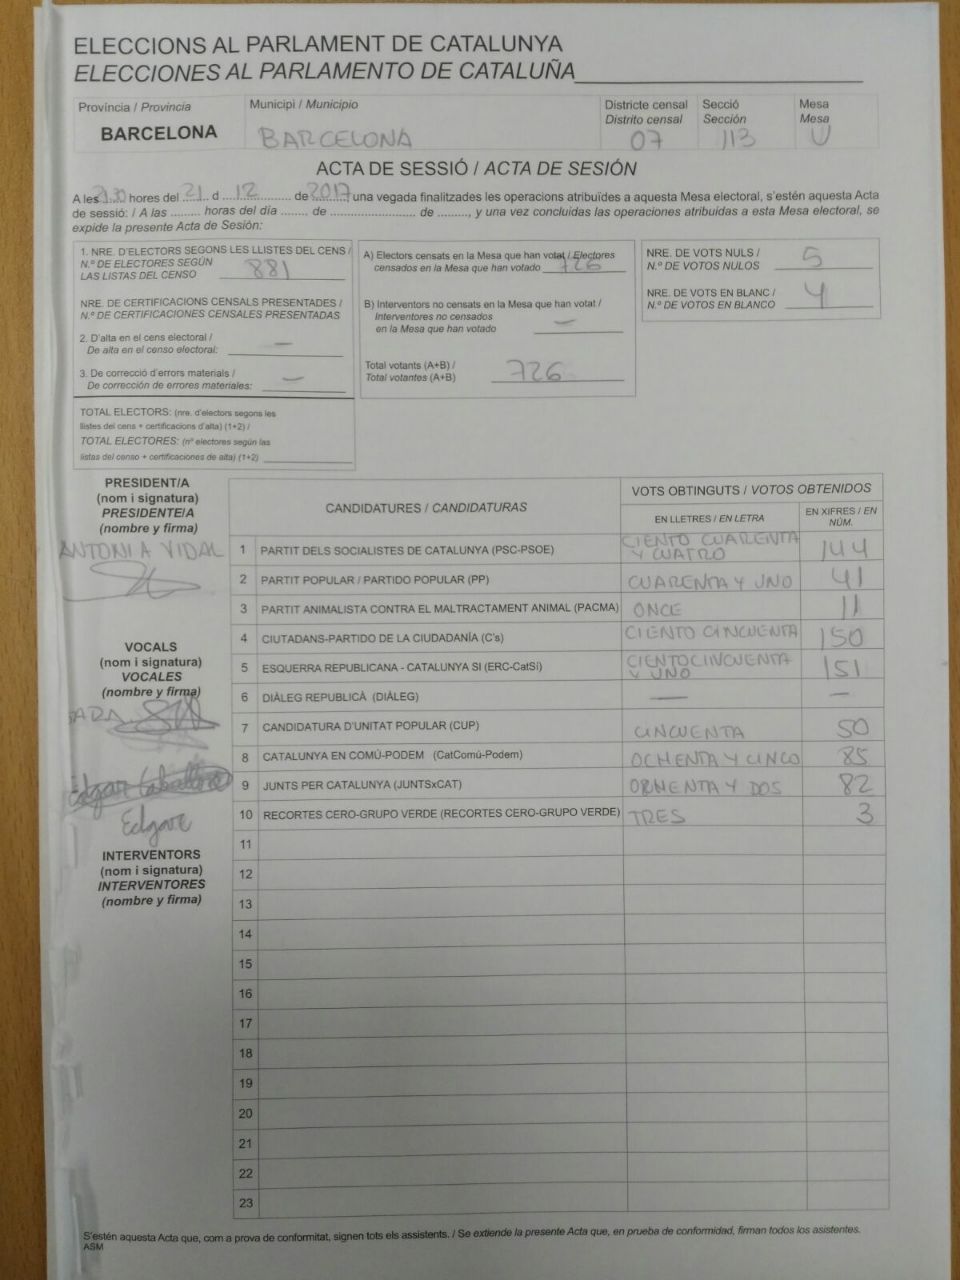 ELECCIONS AL PARLAMENT DE CATALUNYA
ELECCIONES AL PARLAMENTO DE CATALUÑA
Província / Provincia
BARCELONA
Municipi / Municipio
BARCELONA
Districte censal
Distrito censal
07
Secció
Sección
113
Mesa
Mesa
U
ACTA DE SESSIÓ / ACTA DE SESIÓN
A les 21:30 hores del 21 d 12 de 2017 una vegada finalitzades les operacions atribuïdes a aquesta Mesa electoral, s'estén aquesta Acta
de sessió: / A las ......... horas del día ....... de ....................... de ........., y una vez concluidas las operaciones atribuidas a esta Mesa electoral, se
expide la presente Acta de Sesión:
1. NRE. D'ELECTORS SEGONS LES LLISTES DEL CENS /
N.º DE ELECTORES SEGÚN
LAS LISTAS DEL CENSO 881
NRE. DE CERTIFICACIONS CENSALS PRESENTADES /
N.º DE CERTIFICACIONES CENSALES PRESENTADAS
2. D'alta en el cens electoral /
De alta en el censo electoral: —
3. De correcció d'errors materials /
De corrección de errores materiales: —
TOTAL ELECTORS: (nre. d'electors segons les
llistes del cens + certificacions d'alta) (1+2) /
TOTAL ELECTORES: (nº electores según las
listas del censo + certificaciones de alta) (1+2)
A) Electors censats en la Mesa que han votat / Electores
censados en la Mesa que han votado 726
B) Interventors no censats en la Mesa que han votat /
Interventores no censados
en la Mesa que han votado —
Total votants (A+B) /
Total votantes (A+B) 726
NRE. DE VOTS NULS /
N.º DE VOTOS NULOS 5
NRE. DE VOTS EN BLANC /
N.º DE VOTOS EN BLANCO 4
PRESIDENT/A
(nom i signatura)
PRESIDENTE/A
(nombre y firma)
ANTONIA VIDAL
VOCALS
(nom i signatura)
VOCALES
(nombre y firma)
SARA
Edgar Caballero
Edgar
INTERVENTORS
(nom i signatura)
INTERVENTORES
(nombre y firma)
CANDIDATURES / CANDIDATURAS
VOTS OBTINGUTS / VOTOS OBTENIDOS
EN LLETRES / EN LETRA
EN XIFRES / EN NÚM.
1 PARTIT DELS SOCIALISTES DE CATALUNYA (PSC-PSOE) CIENTO CUARENTA Y CUATRO 144
2 PARTIT POPULAR / PARTIDO POPULAR (PP) CUARENTA Y UNO 41
3 PARTIT ANIMALISTA CONTRA EL MALTRACTAMENT ANIMAL (PACMA) ONCE 11
4 CIUTADANS-PARTIDO DE LA CIUDADANÍA (C's) CIENTO CINCUENTA 150
5 ESQUERRA REPUBLICANA - CATALUNYA SI (ERC-CatSí) CIENTO CINCUENTA Y UNO 151
6 DIÀLEG REPUBLICÀ (DIÀLEG) — —
7 CANDIDATURA D'UNITAT POPULAR (CUP) CINCUENTA 50
8 CATALUNYA EN COMÚ-PODEM (CatComú-Podem) OCHENTA Y CINCO 85
9 JUNTS PER CATALUNYA (JUNTSxCAT) OCHENTA Y DOS 82
10 RECORTES CERO-GRUPO VERDE (RECORTES CERO-GRUPO VERDE) TRES 3
11
12
13
14
15
16
17
18
19
20
21
22
23
S'estén aquesta Acta que, com a prova de conformitat, signen tots els assistents. / Se extiende la presente Acta que, en prueba de conformidad, firman todos los asistentes.
ASM